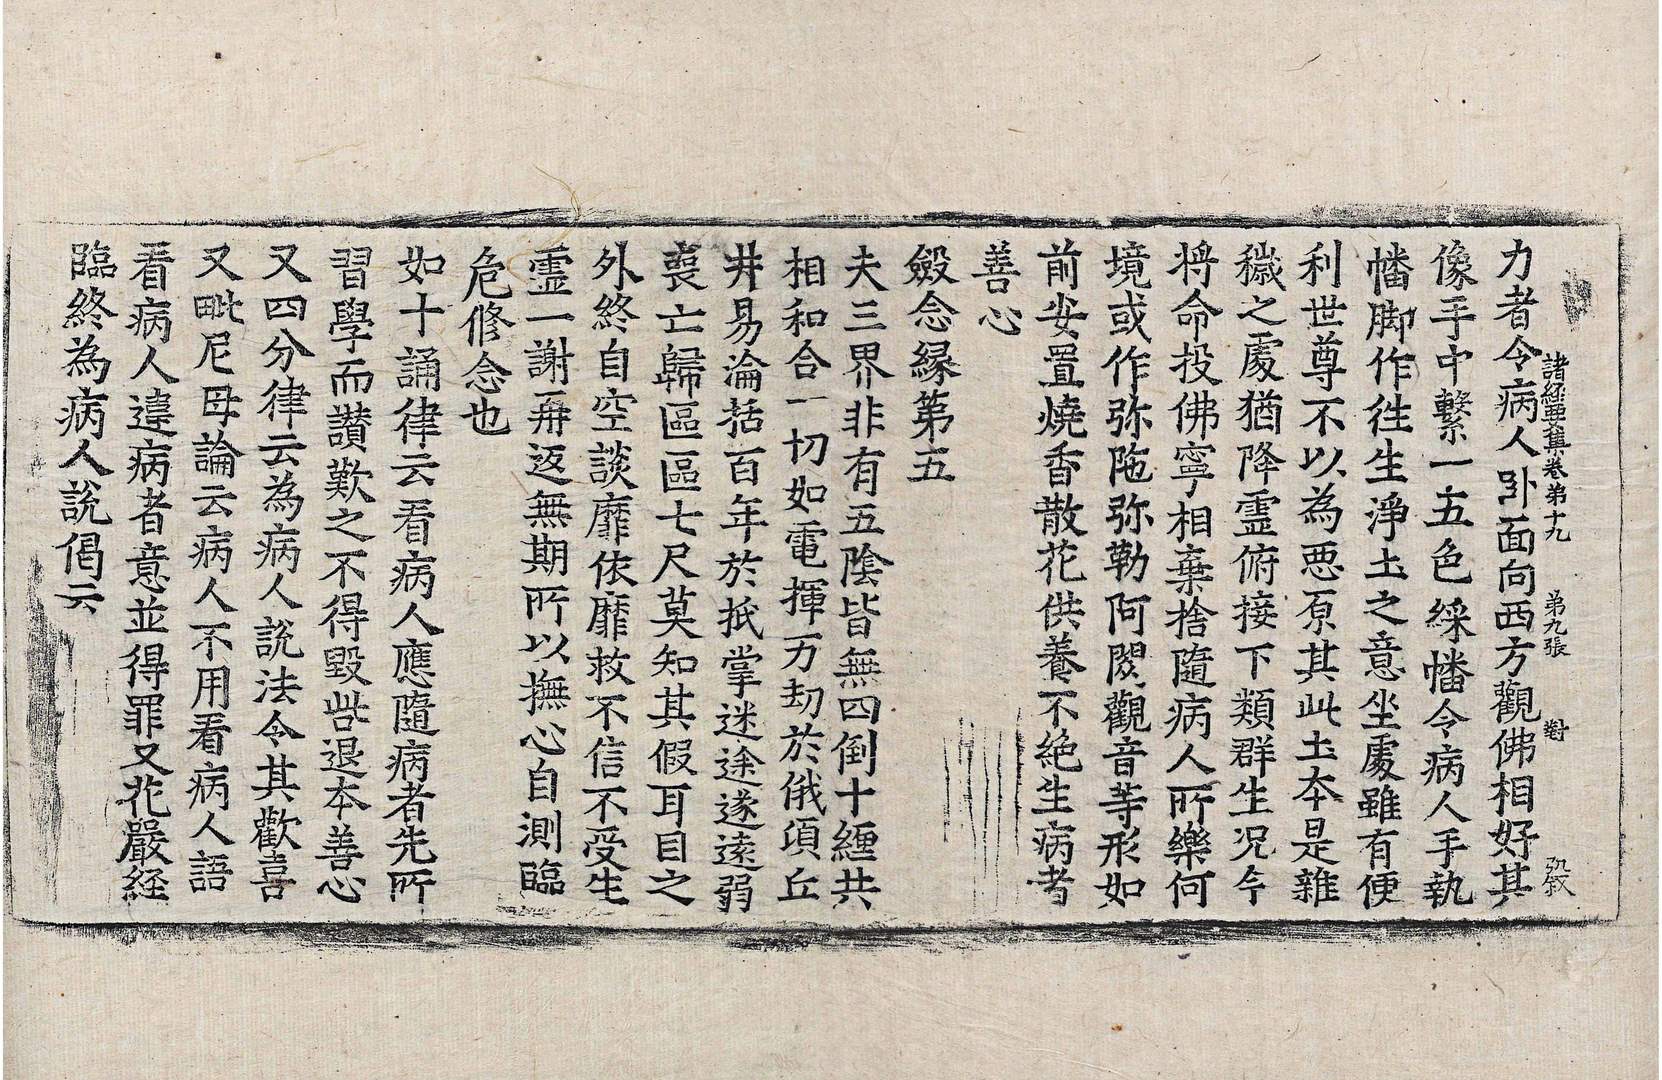 諸経要集卷第十九 第九張 對 刕敘
力者令病人卧面向西方觀佛相好其
像手中繫一五色綵幡令病人手執
幡脚作徃生淨土之意坐處雖有便
利世尊不以為惡原其此土本是雜
穢之處猶降霊俯接下類群生况今
将命投佛寧相棄捨隨病人所樂何
境或作弥陁弥勒阿閦觀音等形如
前安置燒香散花供養不絶生病者
善心
斂念縁第五
夫三界非有五陰皆無四倒十纏共
相和合一切如電揮万劫於俄頃丘
井易淪括百年於抵掌迷途遂遠弱
喪亡歸區區七尺莫知其假耳目之
外終自空談靡依靡救不信不受生
霊一謝再返無期所以撫心自測臨
危修念也
如十誦律云看病人應隨病者先所
習學而讃歎之不得毀呰退本善心
又四分律云為病人說法令其歡喜
又毗尼母論云病人不用看病人語
看病人違病者意並得罪又花嚴経
臨終為病人說偈云